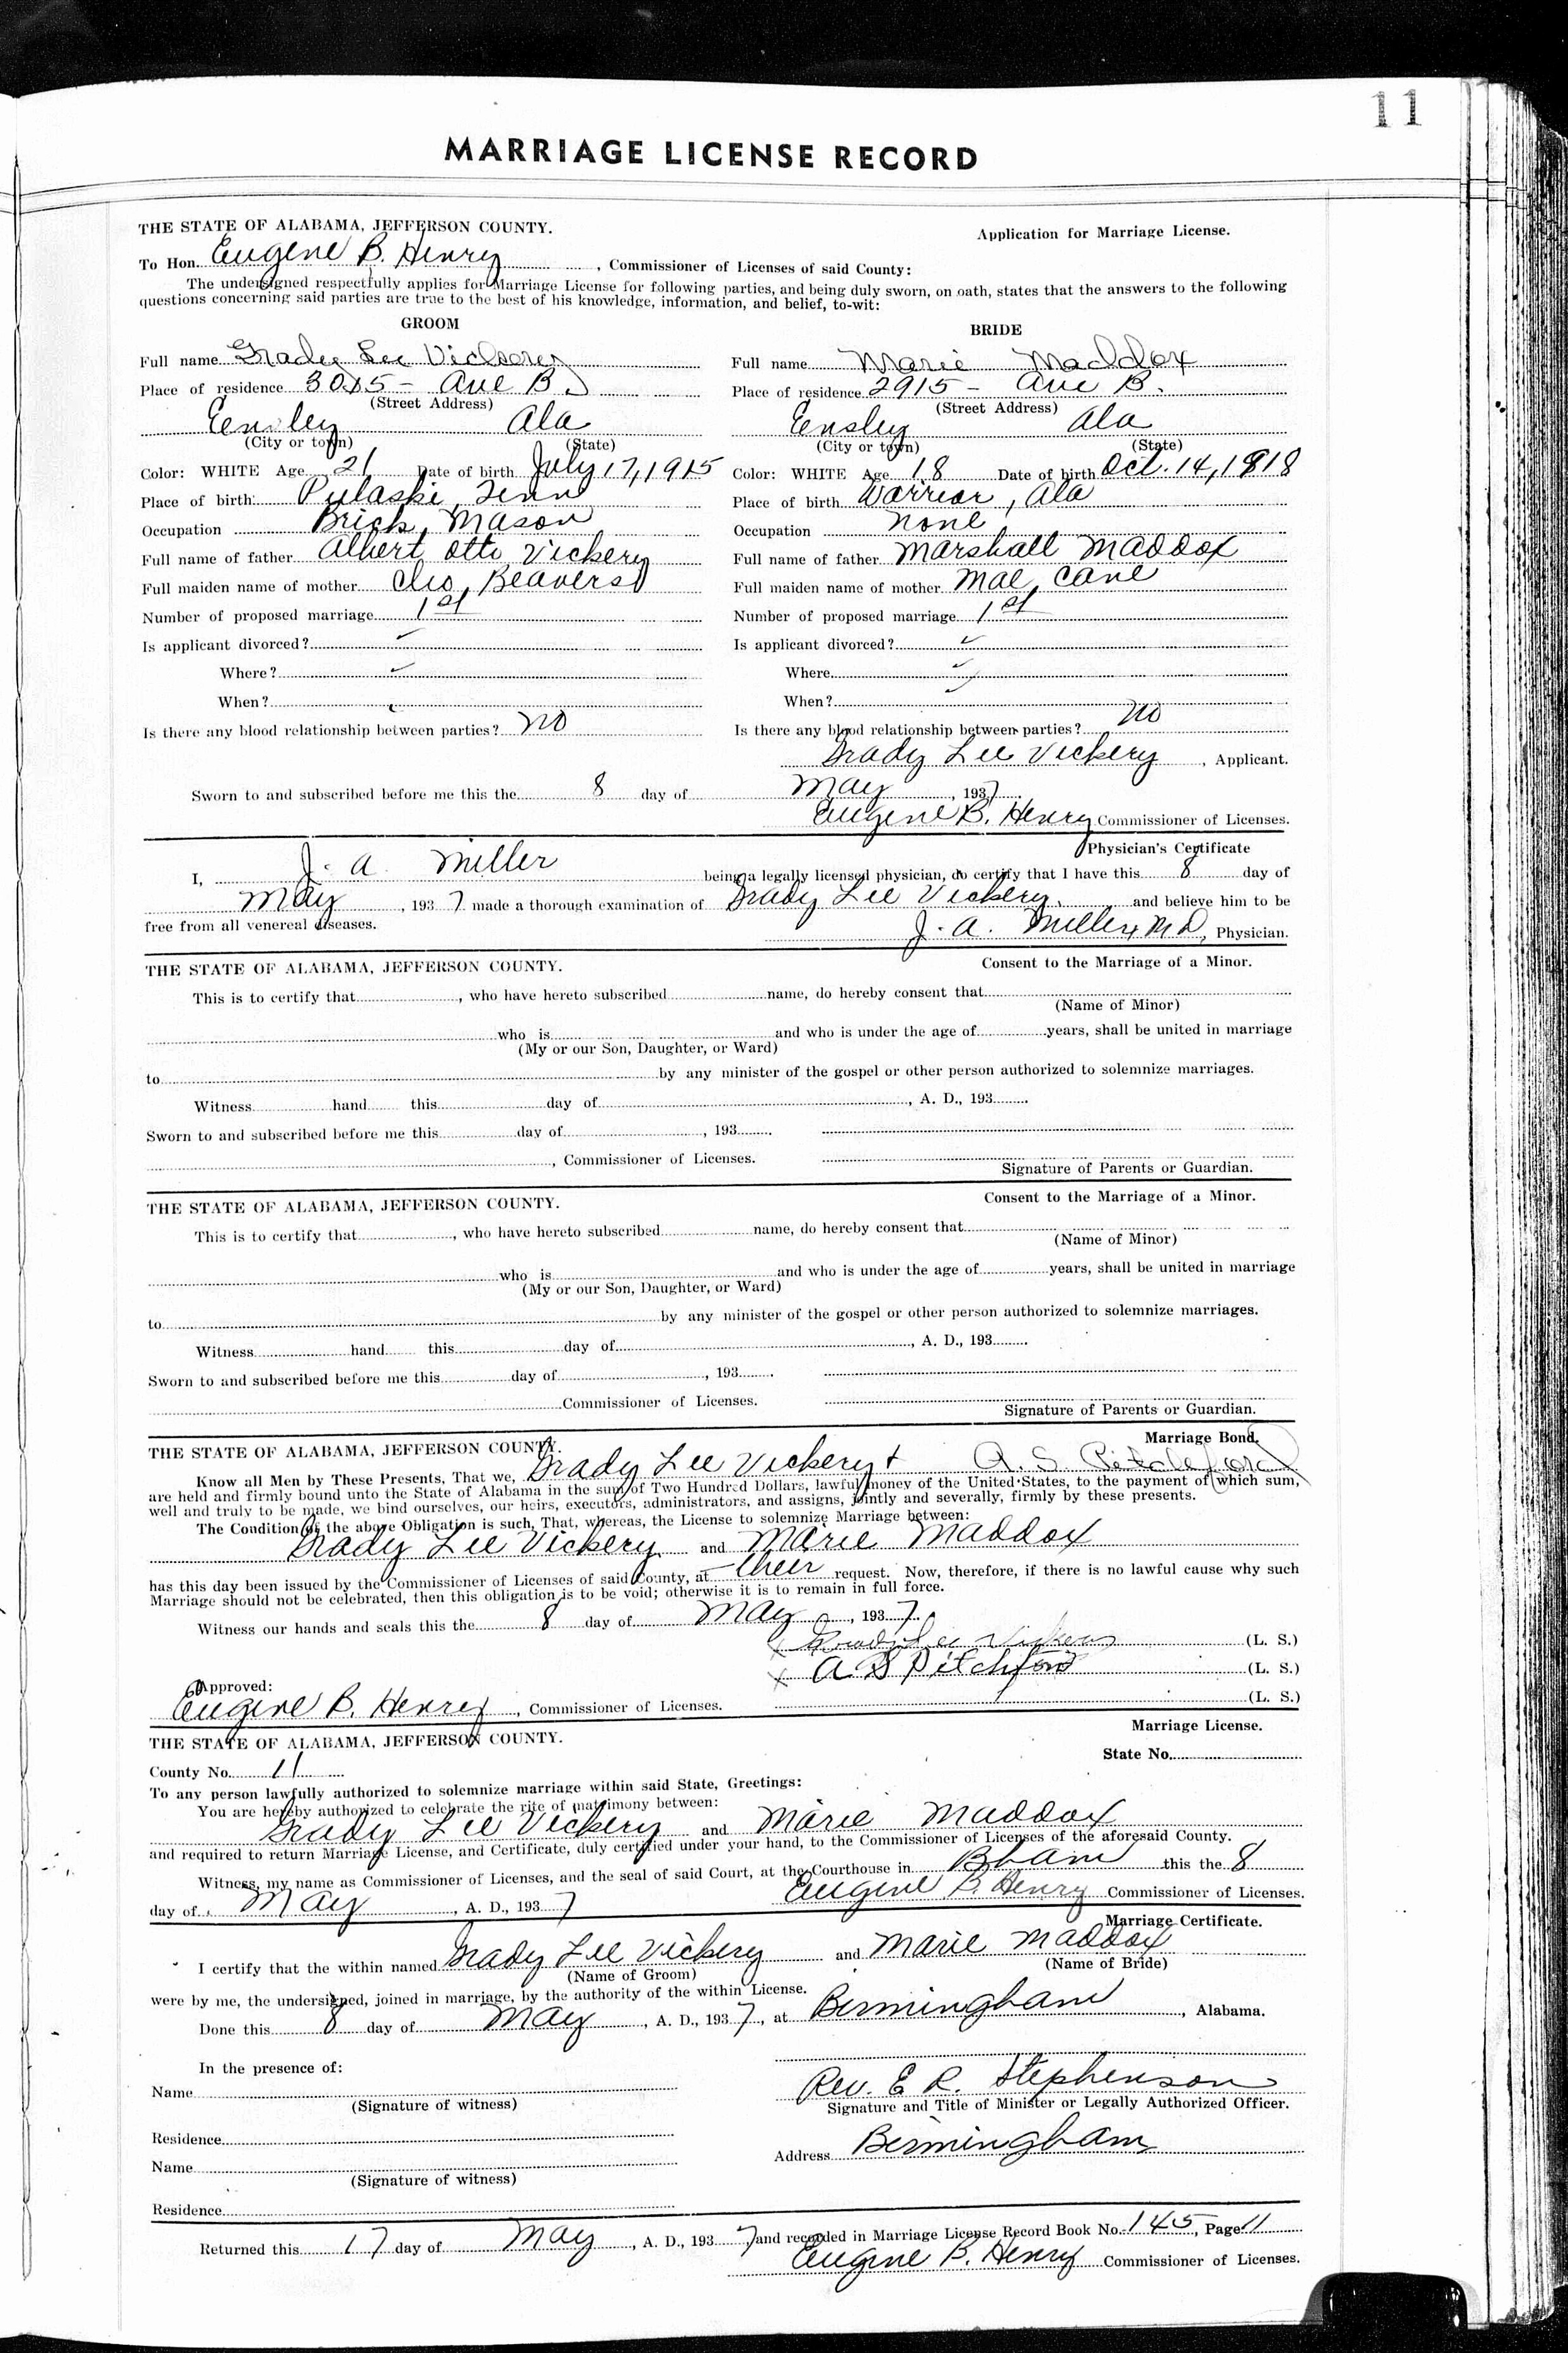 11
MARRIAGE LICENSE RECORD
THE STATE OF ALABAMA, JEFFERSON COUNTY. Application for Marriage License.
To Hon. Eugene B. Henry, Commissioner of Licenses of said County:
The undersigned respectfully applies for Marriage License for following parties, and being duly sworn, on oath, states that the answers to the following
questions concerning said parties are true to the best of his knowledge, information, and belief, to-wit:
GROOM
Full name Grady Lee Vickery
Place of residence 3015 - Ave B
(Street Address)
Ensley Ala
(City or town) (State)
Color: WHITE Age 21 Date of birth July 17, 1915
Place of birth: Pulaski, Tenn
Occupation Brick Mason
Full name of father Albert Otto Vickery
Full maiden name of mother Cleo Beavers
Number of proposed marriage 1st
Is applicant divorced? ✓
Where? ✓
When? ✓
Is there any blood relationship between parties? No
BRIDE
Full name Marie Maddox
Place of residence 2915 - Ave B.
(Street Address)
Ensley Ala
(City or town) (State)
Color: WHITE Age 18 Date of birth Oct. 14, 1918
Place of birth Warrior, Ala
Occupation None
Full name of father Marshall Maddox
Full maiden name of mother Mae Cane
Number of proposed marriage 1st
Is applicant divorced? ✓
Where ✓
When? ✓
Is there any blood relationship between parties? No
Grady Lee Vickery, Applicant.
Sworn to and subscribed before me this the 8 day of May, 1937
Eugene B. Henry Commissioner of Licenses.
Physician's Certificate
I, J. A. Miller being a legally licensed physician, do certify that I have this 8 day of
May, 1937 made a thorough examination of Grady Lee Vickery, and believe him to be
free from all venereal diseases.
J. A. Miller, M D, Physician.
THE STATE OF ALABAMA, JEFFERSON COUNTY. Consent to the Marriage of a Minor.
This is to certify that, who have hereto subscribed name, do hereby consent that
(Name of Minor)
who is and who is under the age of years, shall be united in marriage
(My or our Son, Daughter, or Ward)
to by any minister of the gospel or other person authorized to solemnize marriages.
Witness hand this day of, A. D., 193
Sworn to and subscribed before me this day of, 193
, Commissioner of Licenses.
Signature of Parents or Guardian.
THE STATE OF ALABAMA, JEFFERSON COUNTY. Consent to the Marriage of a Minor.
This is to certify that, who have hereto subscribed name, do hereby consent that
(Name of Minor)
who is and who is under the age of years, shall be united in marriage
(My or our Son, Daughter, or Ward)
to by any minister of the gospel or other person authorized to solemnize marriages.
Witness hand this day of, A. D., 193
Sworn to and subscribed before me this day of, 193
Commissioner of Licenses.
Signature of Parents or Guardian.
THE STATE OF ALABAMA, JEFFERSON COUNTY. Marriage Bond.
Know all Men by These Presents, That we, Grady Lee Vickery + A. S. Pitchford
are held and firmly bound unto the State of Alabama in the sum of Two Hundred Dollars, lawful money of the United States, to the payment of which sum,
well and truly to be made, we bind ourselves, our heirs, executors, administrators, and assigns, jointly and severally, firmly by these presents.
The Condition of the above Obligation is such, That, whereas, the License to solemnize Marriage between:
Grady Lee Vickery and Marie Maddox
has this day been issued by the Commissioner of Licenses of said County, at their request. Now, therefore, if there is no lawful cause why such
Marriage should not be celebrated, then this obligation is to be void; otherwise it is to remain in full force.
Witness our hands and seals this the 8 day of May, 1937.
x Grady Lee Vickery (L. S.)
x A S Pitchford (L. S.)
(L. S.)
Approved:
Eugene B. Henry, Commissioner of Licenses.
THE STATE OF ALABAMA, JEFFERSON COUNTY. Marriage License.
State No.
County No. 11
To any person lawfully authorized to solemnize marriage within said State, Greetings:
You are hereby authorized to celebrate the rite of matrimony between:
Grady Lee Vickery and Marie Maddox
and required to return Marriage License, and Certificate, duly certified under your hand, to the Commissioner of Licenses of the aforesaid County.
Witness, my name as Commissioner of Licenses, and the seal of said Court, at the Courthouse in Bham this the 8
day of May, A. D., 1937 Eugene B. Henry Commissioner of Licenses.
Marriage Certificate.
I certify that the within named Grady Lee Vickery and Marie Maddox
(Name of Groom) (Name of Bride)
were by me, the undersigned, joined in marriage, by the authority of the within License.
Done this 8 day of May, A. D., 1937, at Birmingham, Alabama.
In the presence of:
Name
(Signature of witness)
Residence
Name
(Signature of witness)
Residence
Rev. E R. Stephenson
Signature and Title of Minister or Legally Authorized Officer.
Address Birmingham
Returned this 17 day of May, A. D., 1937 and recorded in Marriage License Record Book No. 145, Page 11
Eugene B. Henry Commissioner of Licenses.